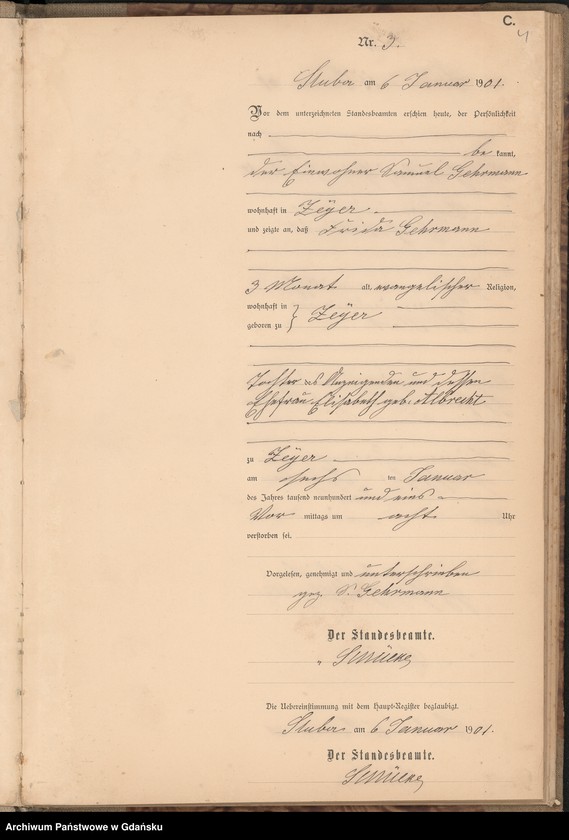 C.
4
Nr. 3.
Stuba am 6 Januar 1901.
Vor dem unterzeichneten Standesbeamten erschien heute, der Persönlichkeit
nach
be kannt,
der Einwohner Samuel Gehrmann
wohnhaft in Zeÿer
und zeigte an, daß Frida Gehrmann
3 Monat alt, evangelischer Religion,
wohnhaft in
geboren zu } Zeÿer
Tochter des Anzeigenden und dessen
Ehefrau Elisabeth geb. Albrecht
zu Zeÿer
am sechs ten Januar
des Jahres tausend neunhundert und eins
Vor mittags um acht Uhr
verstorben sei.
Vorgelesen, genehmigt und unterschrieben
gez. S. Gehrmann
Der Standesbeamte.
Die Uebereinstimmung mit dem Haupt-Register beglaubigt.
Stuba am 6 Januar 1901.
Der Standesbeamte.
Archiwum Państwowe w Gdańsku